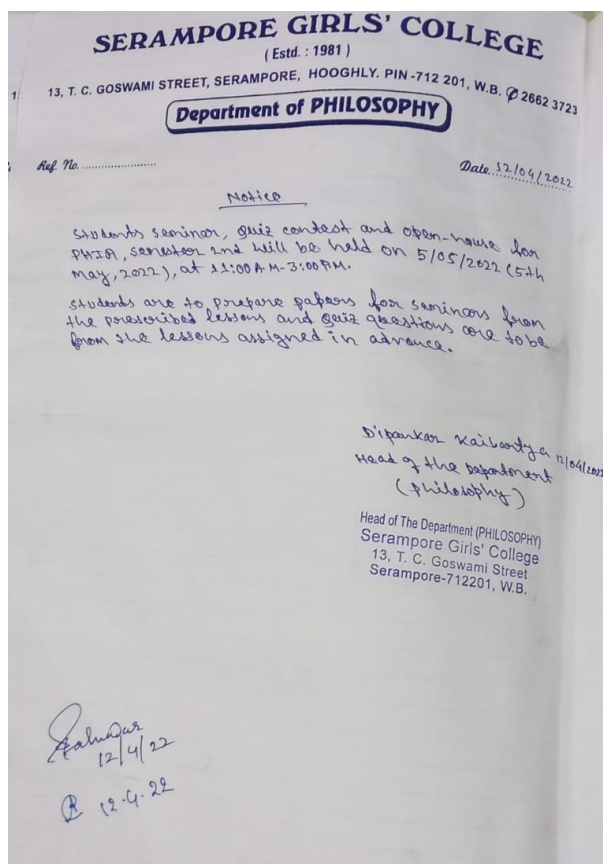 SERAMPORE GIRLS' COLLEGE
( Estd. : 1981 )
13, T. C. GOSWAMI STREET, SERAMPORE, HOOGHLY. PIN -712 201, W.B. ✆ 2662 3723
Department of PHILOSOPHY
Ref. No. ........................
Date 12/04/2022
Notice
Students seminar, quiz contest and open-house for
PHIA, semester 2nd will be held on 5/05/2022 (5th
May, 2022), at 11:00 AM-3:00 PM.
Students are to prepare papers for seminars from
the prescribed lessons and quiz questions are to be
from the lessons assigned in advance.
Dipankar Kaibartya 12/04/2022
Head of the Department
(Philosophy)
Head of The Department (PHILOSOPHY)
Serampore Girls' College
13, T. C. Goswami Street
Serampore-712201, W.B.
12/4/22
12.4.22